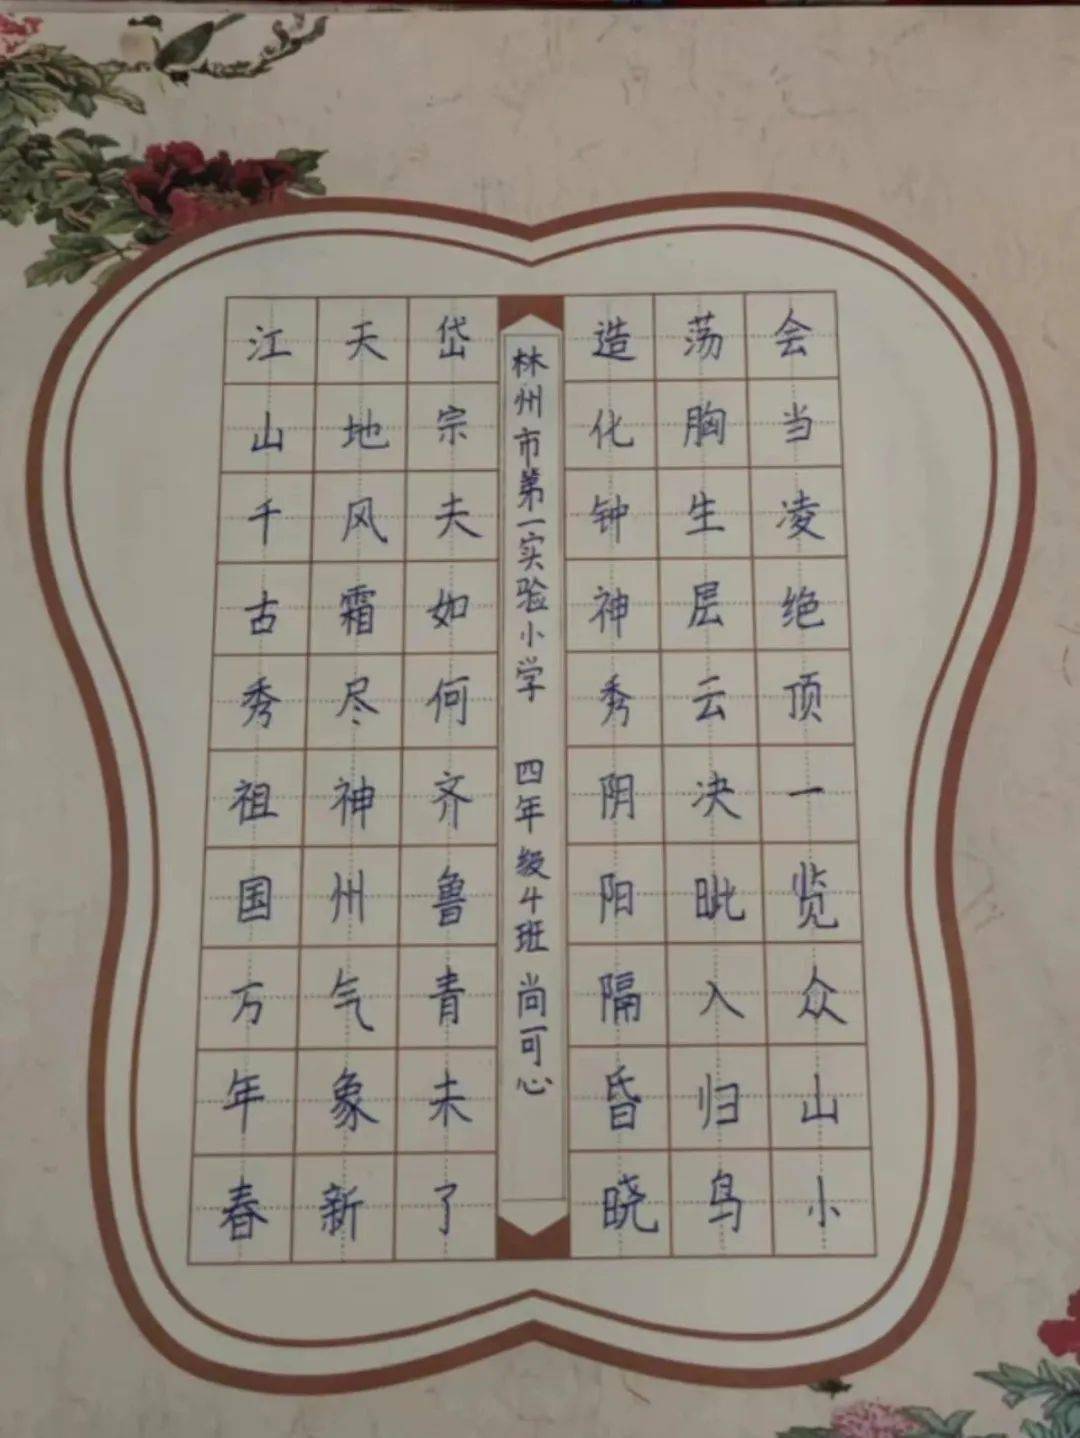 江山千古秀祖国万年春
天地风霜尽神州气象新
岱宗夫如何齐鲁青未了
林州市第一实验小学 四年级4班 尚可心
造化钟神秀阴阳隔昏晓
荡胸生层云决眦入归鸟
会当凌绝顶一览众山小